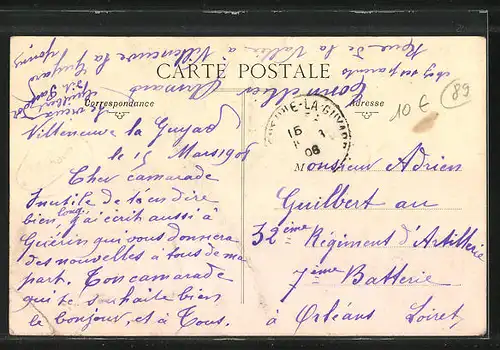 CARTE POSTALE
Correspondance
Adresse
10 €
89
Villeneuve la Guyard
le 15 Mars 1908
Cher camarade
Inutile de t'en dire
bien long, j'ai écrit aussi à
Guérin qui vous donnera
des nouvelles à tous de ma
part. Ton camarade
qui te souhaite bien
le bonjour, et à Tous.
15
08
Monsieur Adrien
Guilbert au
32ième Régiment d'Artillerie
7ième Batterie
à Orléans Loiret
chez ses parents
Rue de la Vallée à Villeneuve la Guyard
Yonne